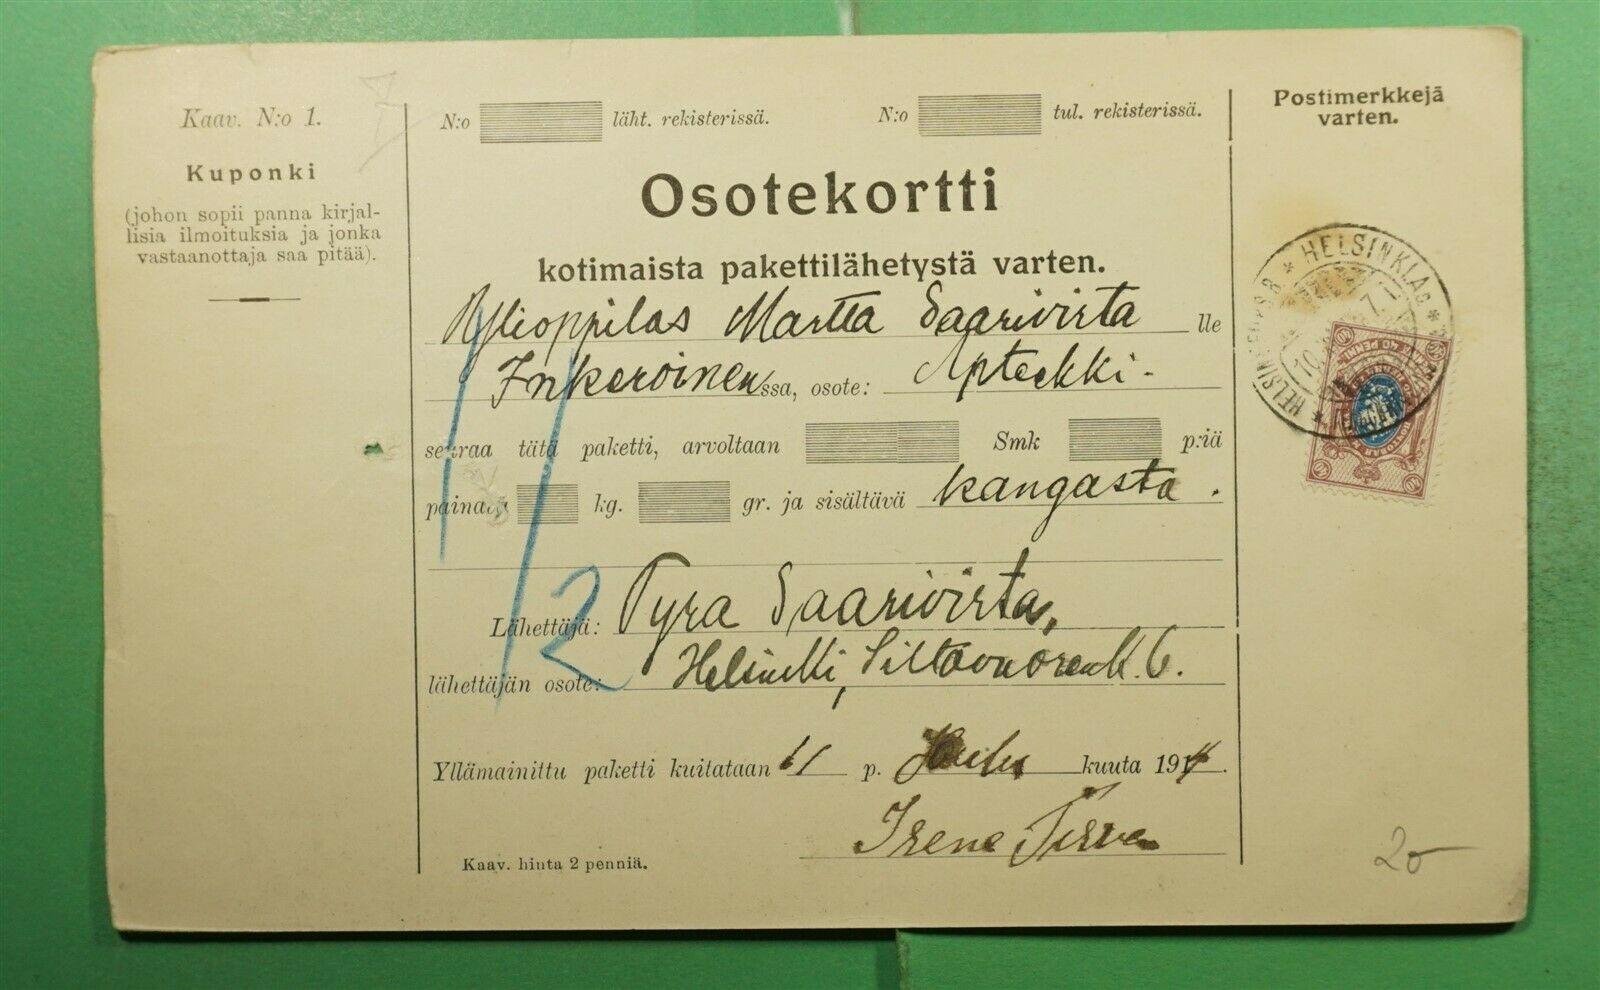 Kaav. N:o 1.
Kuponki
(johon sopii panna kirjal-
lisia ilmoituksia ja jonka
vastaanottaja saa pitää).
N:o läht. rekisterissä. N:o tul. rekisterissä.
Osotekortti
kotimaista pakettilähetystä varten.
Ylioppilas Martta Saarivirta lle
Inkeroinen ssa, osote: Apteekki.
seuraa tätä paketti, arvoltaan Smk p:iä
painava kg. gr. ja sisältävä kangasta.
Lähettäjä: Tyra Saarivirta,
lähettäjän osote: Helsinki, Siltavuorenk. 6.
12
Yllämainittu paketti kuitataan 11 p. kuuta 1914.
Irene
Kaav. hinta 2 penniä.
Postimerkkejä
varten.
HELSINKI
HELSINGFORS
20